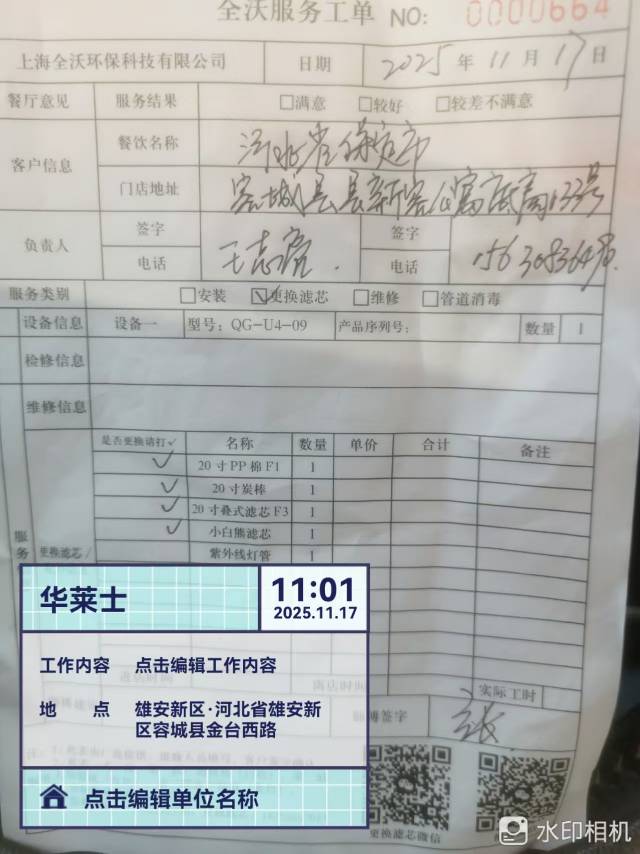 全沃服务工单 NO: 0000664
上海全沃环保科技有限公司 日期 2025年11月17日
餐厅意见 服务结果 □满意 □较好 □较差不满意
客户信息 餐饮名称 河北省保定市
门店地址 容城县县新容 133号
负责人 签字 签字
电话 电话 15630836
服务类别 □安装 ☑更换滤芯 □维修 □管道消毒
设备信息 设备一 型号: QG-U4-09 产品序列号: 数量 1
检修信息
维修信息
是否更换请打✓ 名称 数量 单价 合计 备注
✓ 20寸PP棉F1 1
✓ 20寸炭棒 1
✓ 20寸叠式滤芯F3 1
✓ 小白熊滤芯 1
紫外线灯管 1
服务
更换滤芯/
华莱士 11:01
2025.11.17
工作内容 点击编辑工作内容
地点 雄安新区·河北省雄安新
区容城县金台西路
点击编辑单位名称
离店时间
实际工时
签字
更换滤芯微信
水印相机